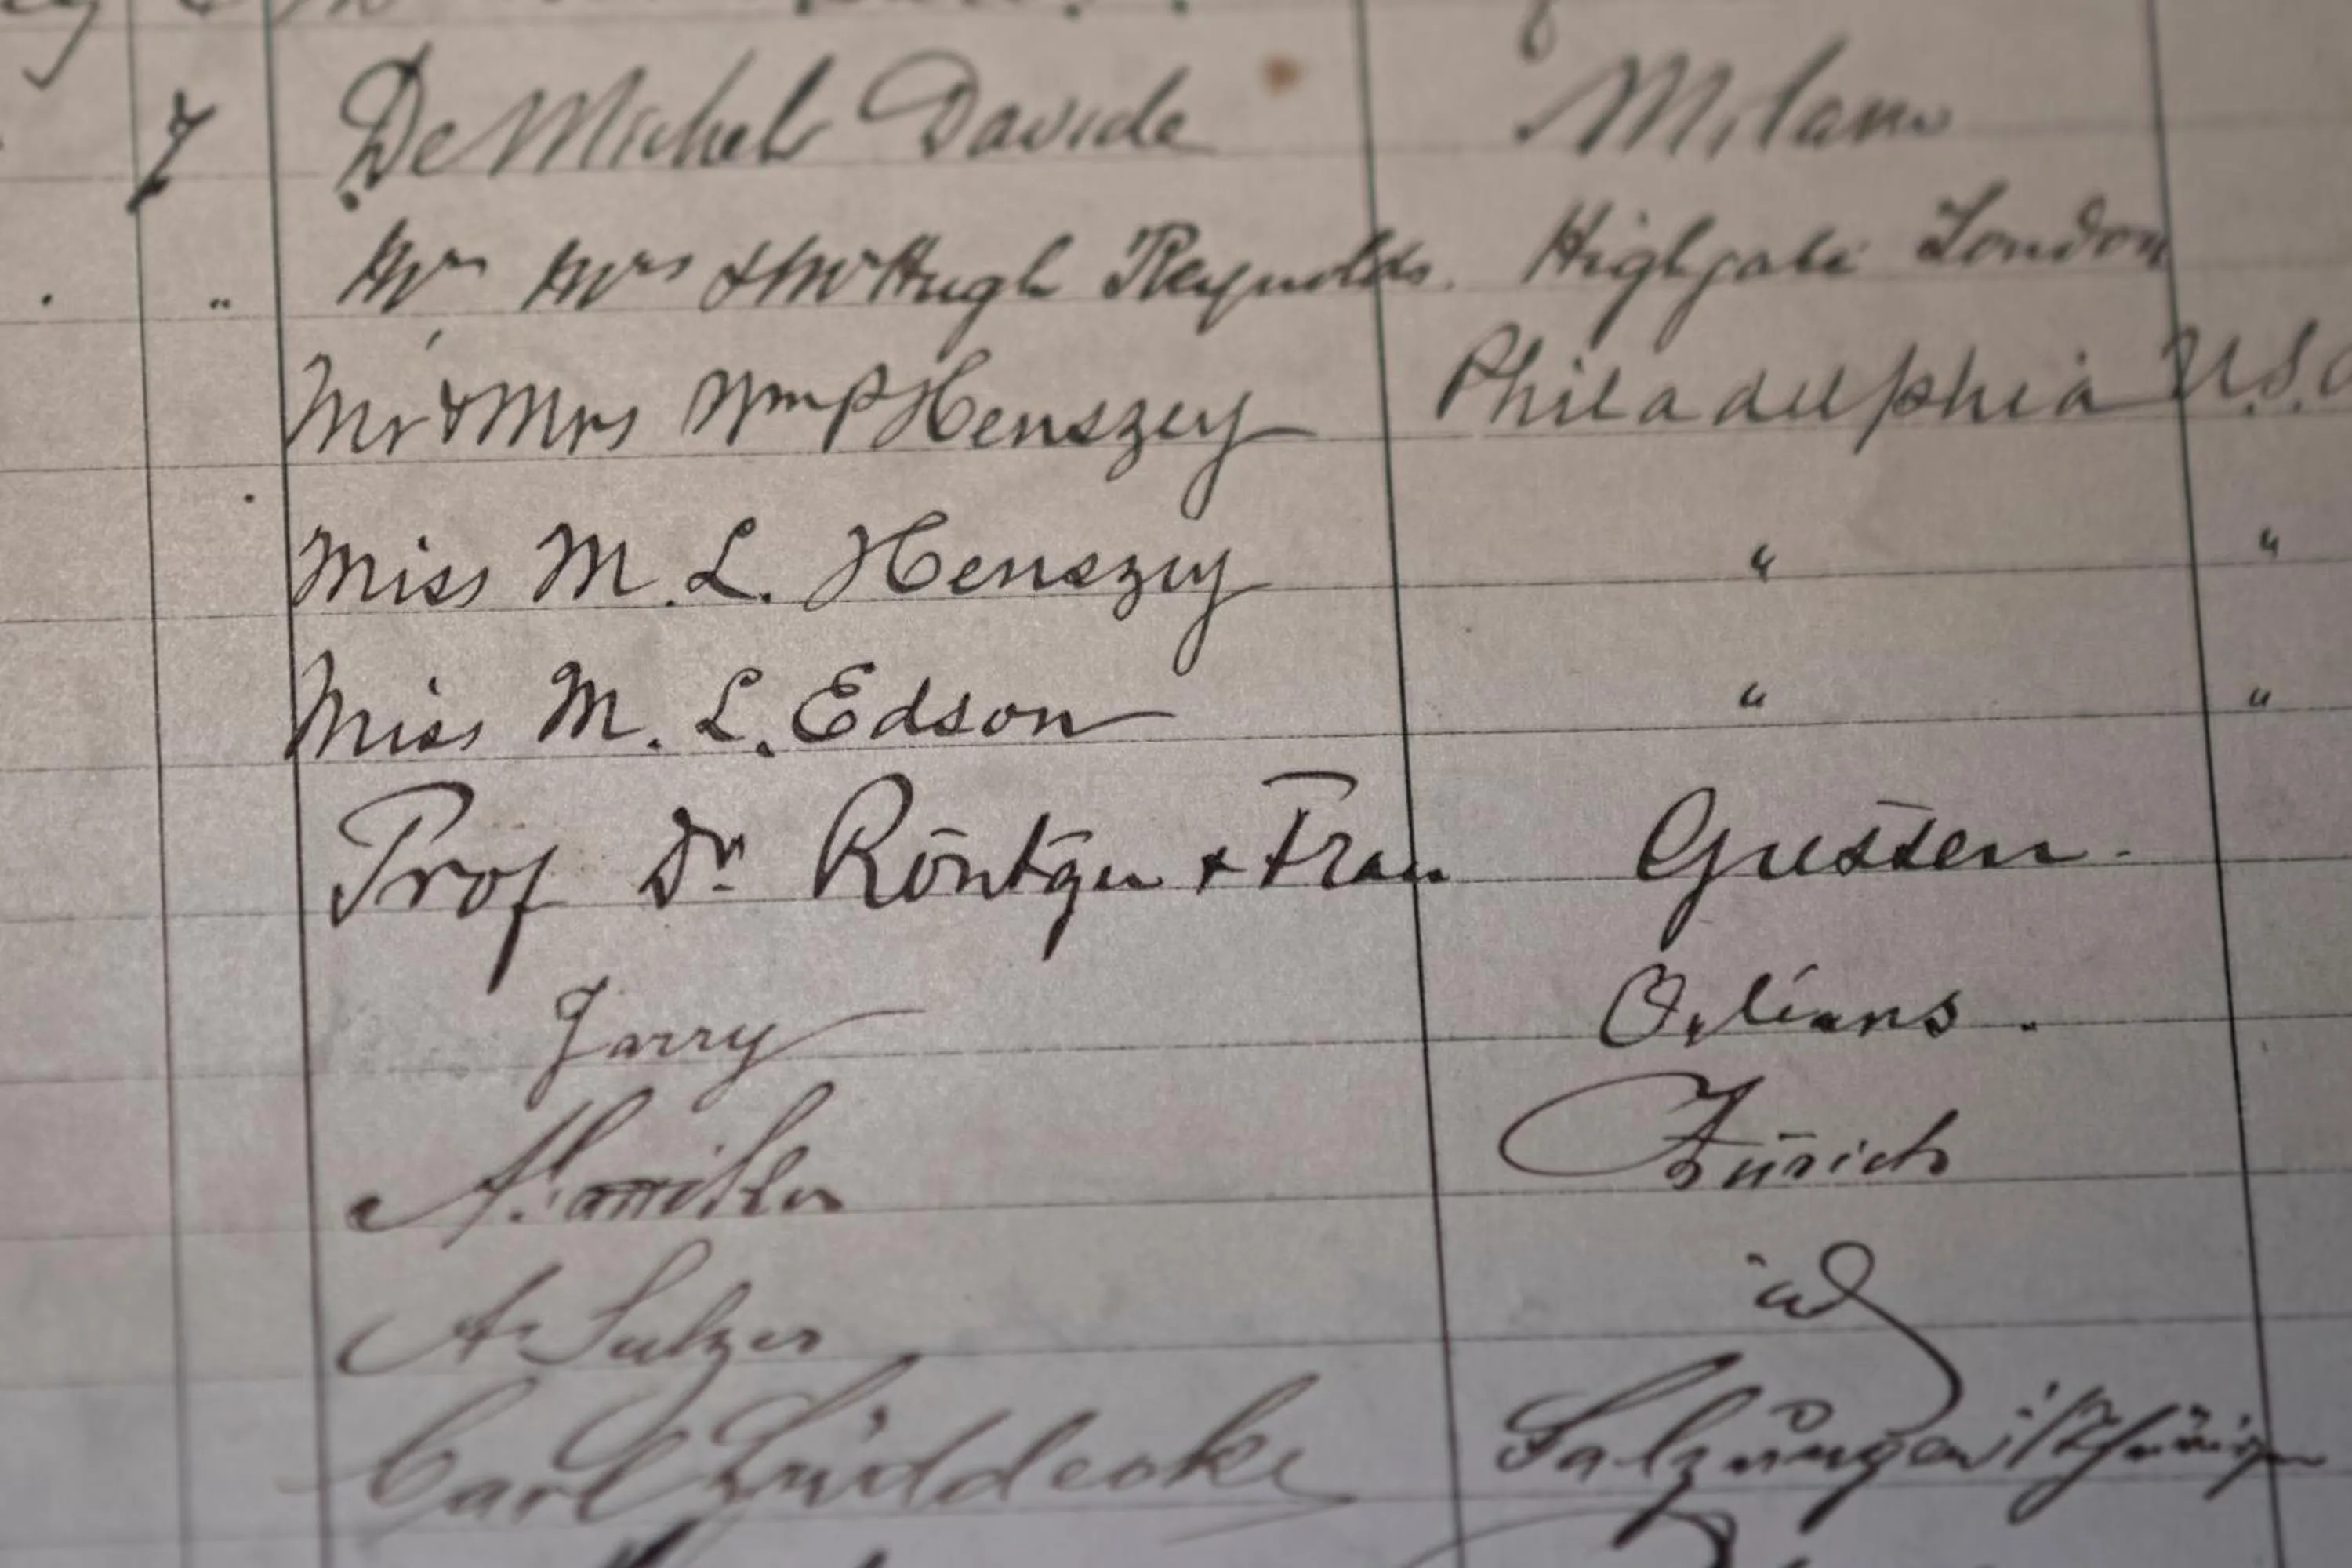 7 De Micheli Davide Milano
" Mr Mrs & Mr Hugh Reynolds. Highgate London
Mr & Mrs Wm P Henszey Philadelphia U.S.
Miss M. L. Henszey " "
Miss M. L. Edson " "
Prof Dr. Röntgen + Frau Giessen.
Jarry Orléans.
Zürich
A. Sulzer id
Carl Lüddecke Salzungen i/Thüringen